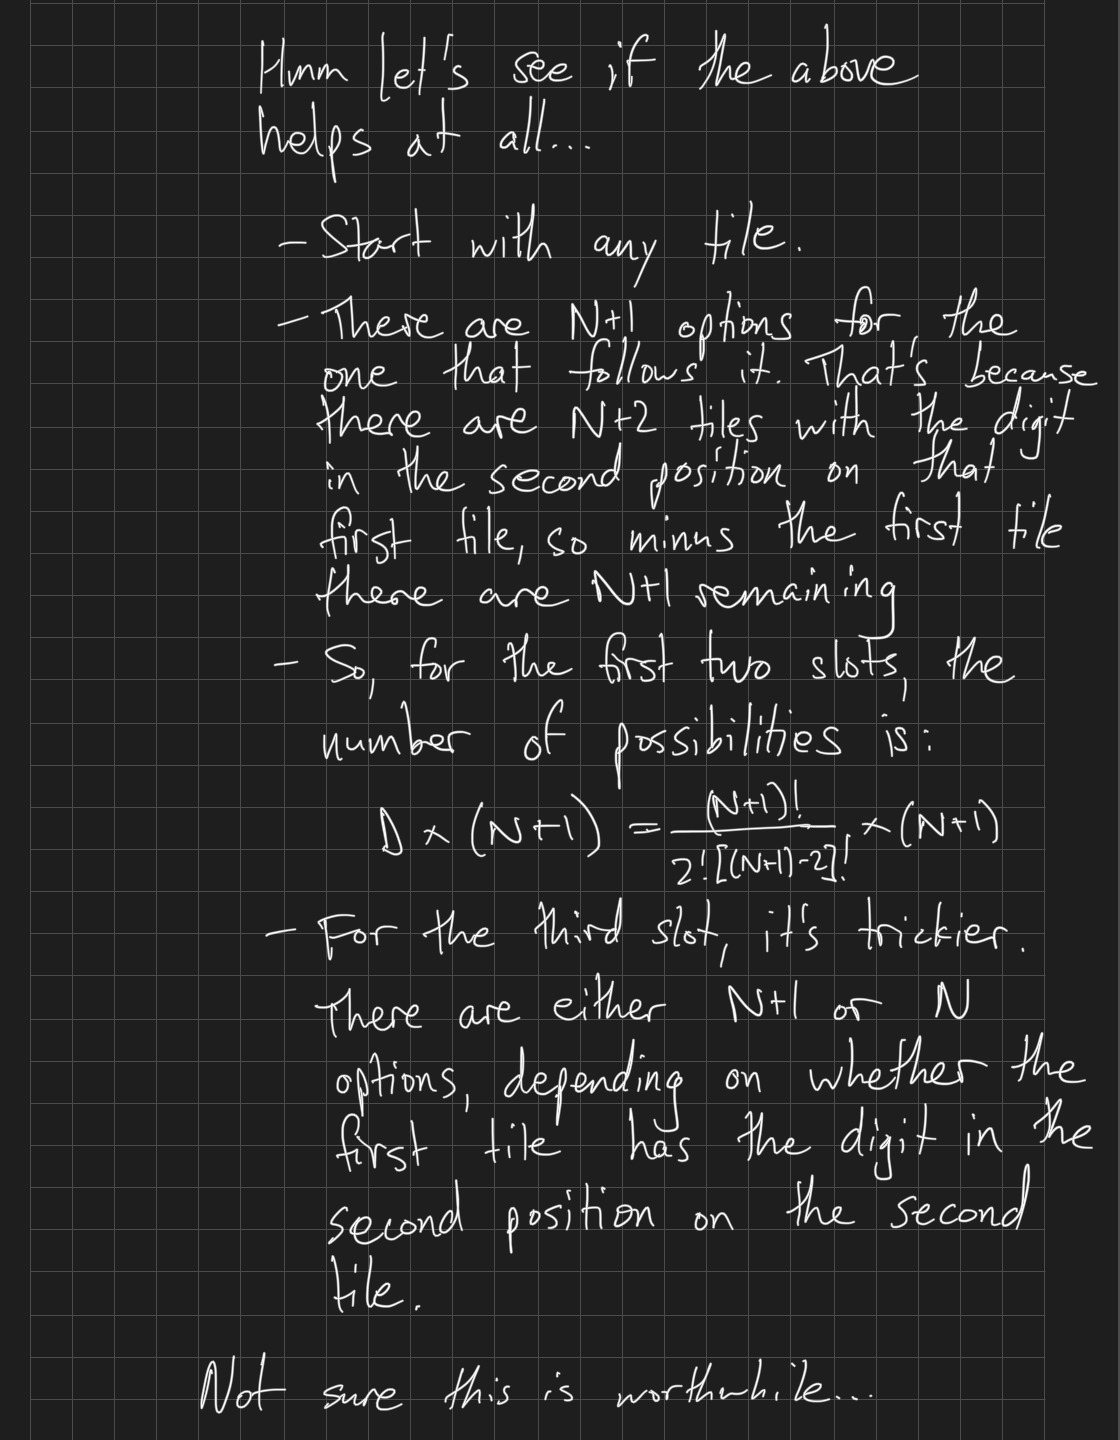 Hmm let's see if the above
helps at all...
- Start with any tile.
- There are N+1 options for the
one that follows it. That's because
there are N+2 tiles with the digit
in the second position on that
first tile, so minus the first tile
there are N+1 remaining
- So, for the first two slots, the
number of possibilities is:
D × (N+1) = (N+1)! / 2![(N+1)-2]! × (N+1)
- For the third slot, it's trickier.
There are either N+1 or N
options, depending on whether the
first tile has the digit in the
second position on the second
tile.
Not sure this is worthwhile...